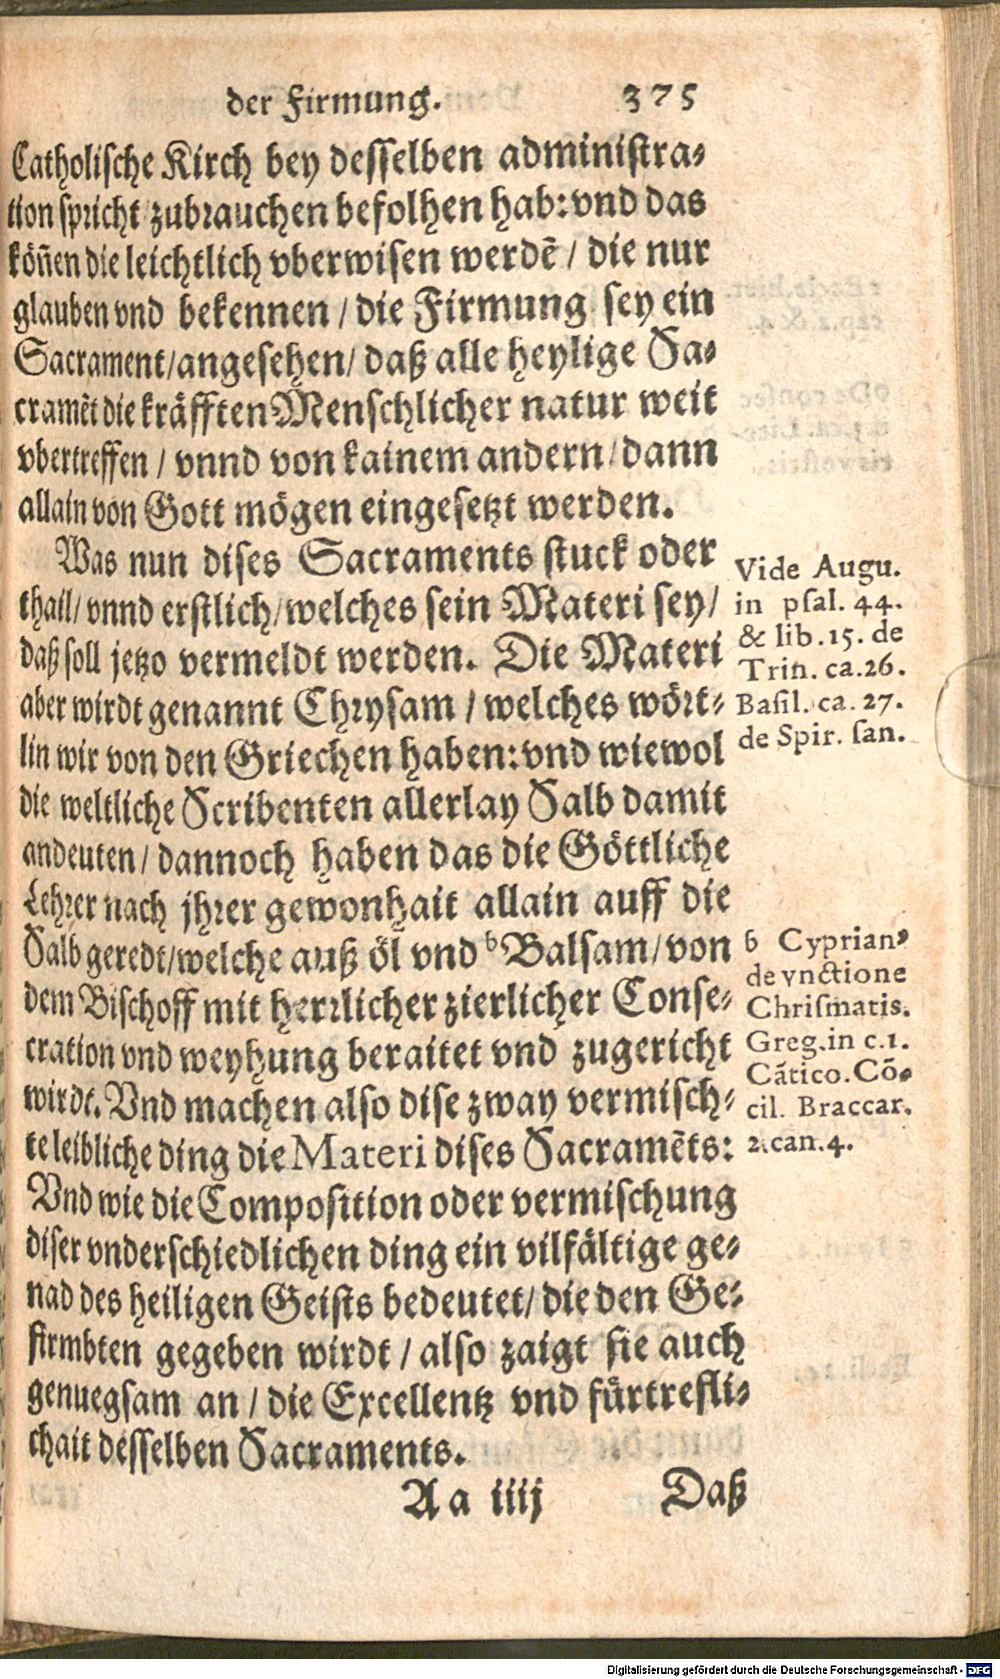 der Firmung. 375
Catholische Kirch bey desselben administra⸗
tion spricht zubrauchen befolhen hab: vnd das
köñen die leichtlich vberwisen werdẽ / die nur
glauben vnd bekennen / die Firmung sey ein
Sacrament / angesehen / daß alle heylige Sa⸗
cramẽt die kräfften Menschlicher natur weit
vbertreffen / vnnd von kainem andern / dann
allain von Gott mögen eingesetzt werden.
Was nun dises Sacraments stuck oder
thail / vnnd erstlich / welches sein Materi sey /
daß soll jetzo vermeldt werden. Die Materi
aber wirdt genannt Chrysam / welches wört⸗
lin wir von den Griechen haben: vnd wiewol
die weltliche Scribenten allerlay Salb damit
andeuten / dannoch haben das die Göttliche
Lehrer nach jhrer gewonhait allain auff die
Salb geredt / welche auß öl vnd b Balsam / von
dem Bischoff mit herrlicher zierlicher Conse⸗
cration vnd weyhung beraitet vnd zugericht
wirdt. Vnd machen also dise zway vermisch⸗
te leibliche ding die Materi dises Sacramẽts:
Vnd wie die Composition oder vermischung
diser vnderschiedlichen ding ein vilfältige ge⸗
nad des heiligen Geists bedeutet / die den Ge⸗
firmbten gegeben wirdt / also zaigt sie auch
genuegsam an / die Excellentz vnd fürtrefli⸗
chait desselben Sacraments.
Aa iiij Daß
Vide Augu.
in psal. 44.
& lib. 15. de
Trin. ca. 26.
Basil. ca. 27.
de Spir. san.
b Cyprian⁹
de vnctione
Chrismatis.
Greg. in c. 1.
Cãtico. Cõ⸗
cil. Braccar.
2. can. 4.
Digitalisierung gefördert durch die Deutsche Forschungsgemeinschaft - DFG